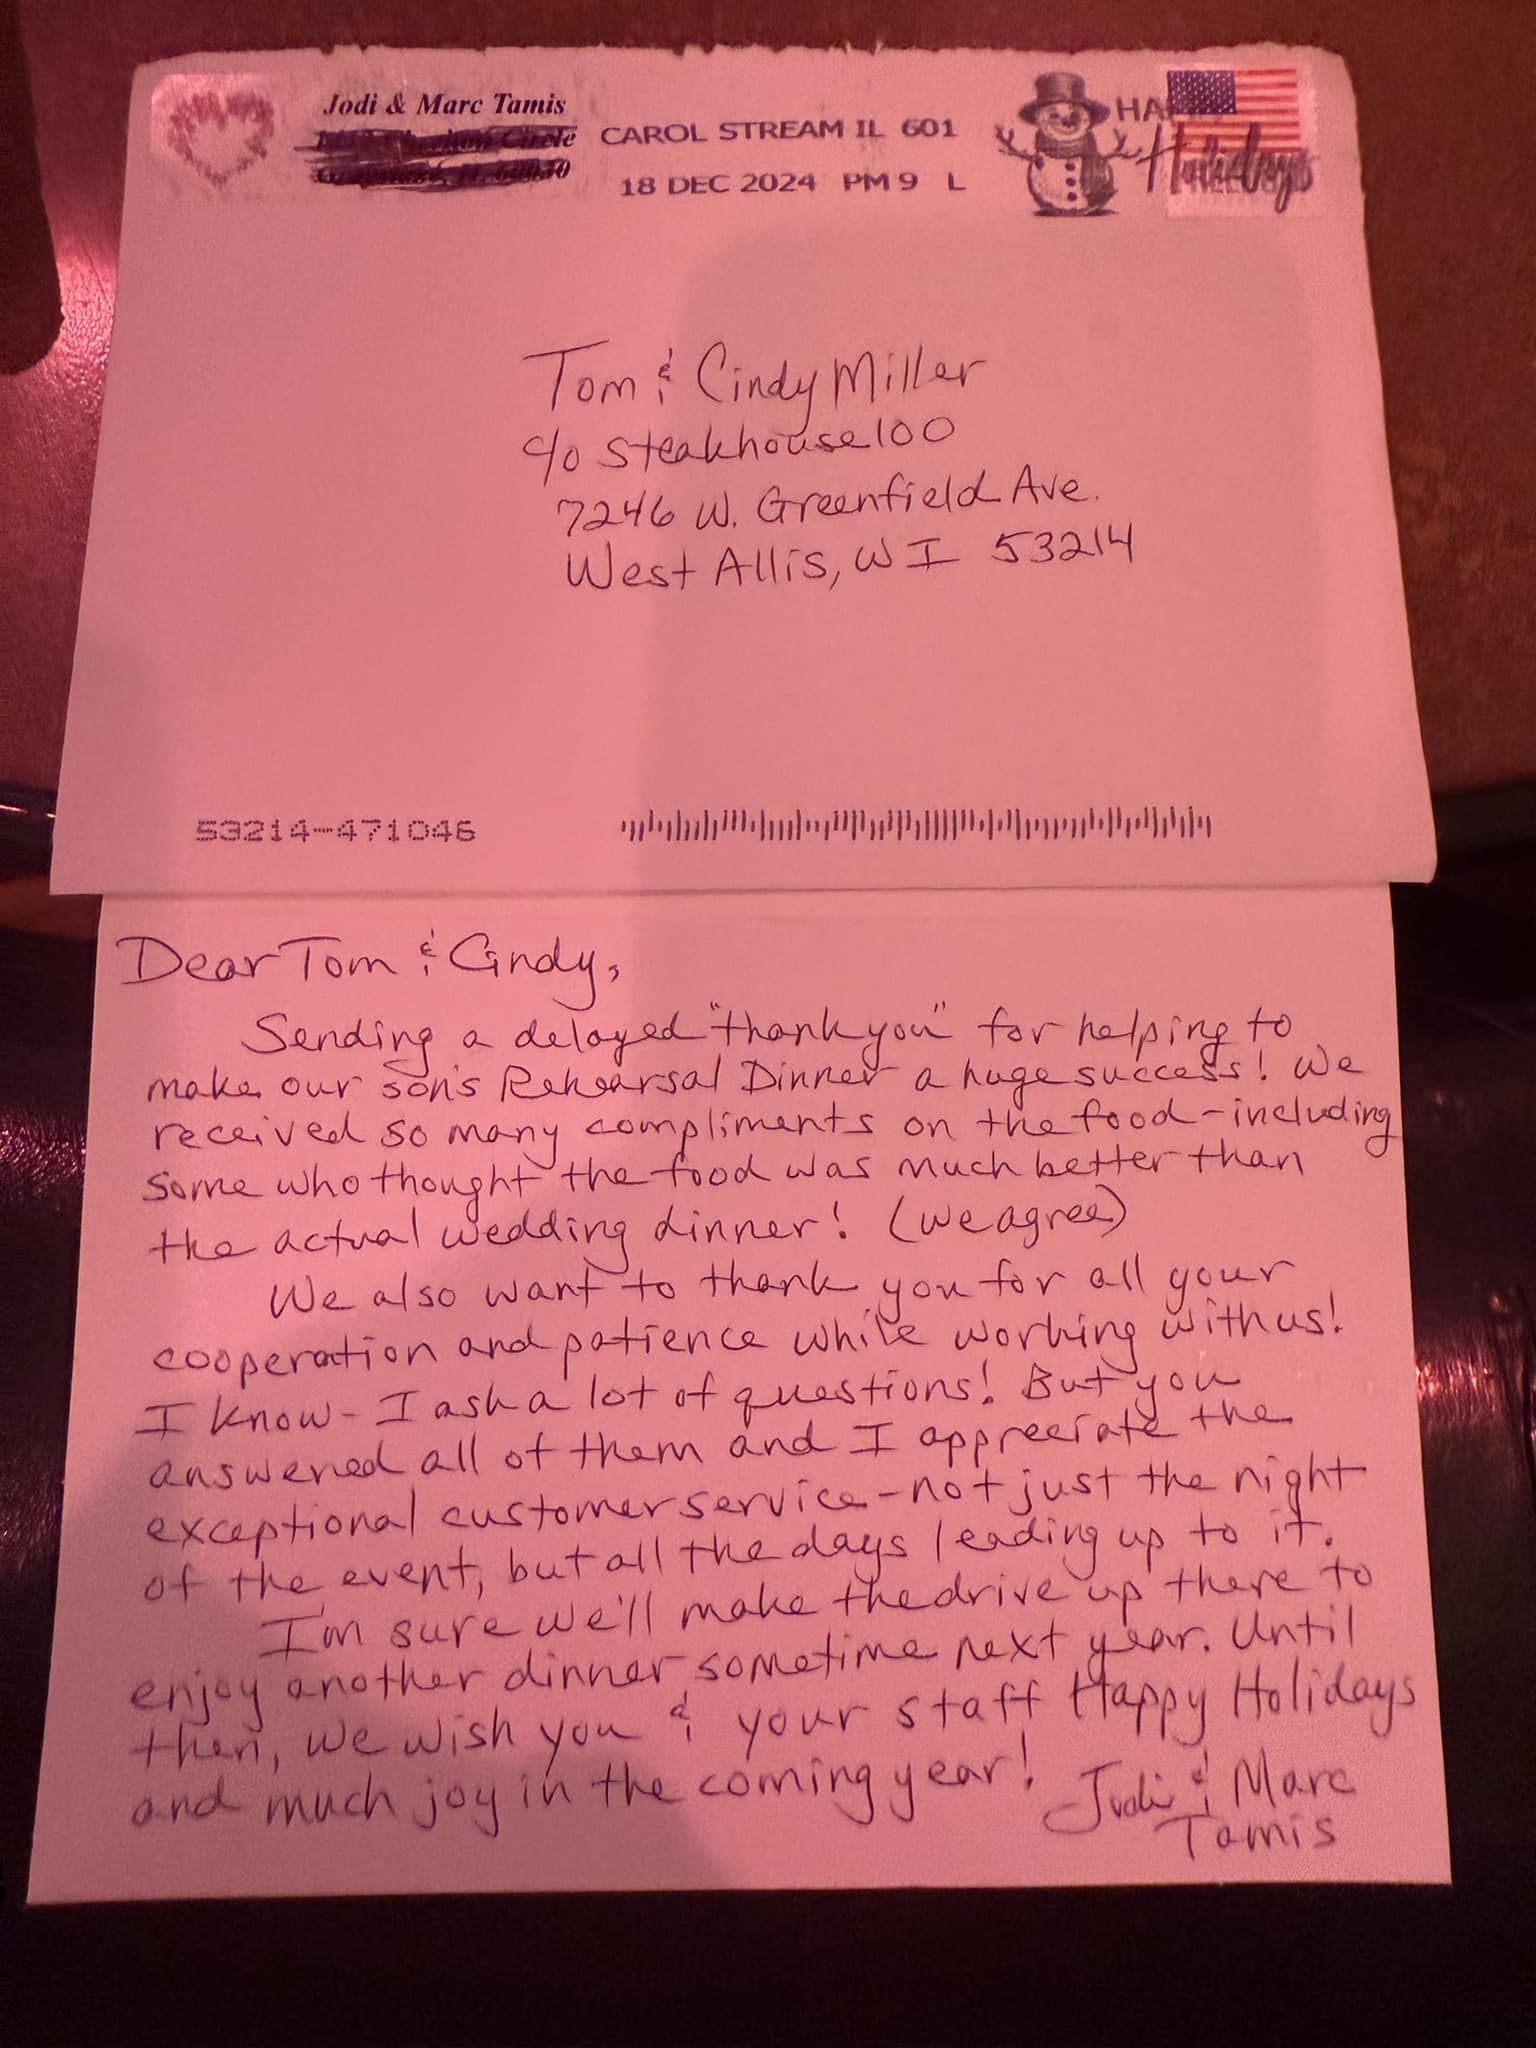 Jodi & Marc Tamis
Circle
CAROL STREAM IL 601
18 DEC 2024 PM 9 L
HA
Holidays
Tom & Cindy Miller
c/o Steakhouse 100
7246 W. Greenfield Ave.
West Allis, WI 53214
53214-471046
Dear Tom & Cindy,
Sending a delayed "thank you" for helping to
make our son's Rehearsal Dinner a huge success! We
received so many compliments on the food - including
some who thought the food was much better than
the actual wedding dinner! (we agree)
We also want to thank you for all your
cooperation and patience while working with us!
I know - I ask a lot of questions! But you
answered all of them and I appreciate the
exceptional customer service - not just the night
of the event, but all the days leading up to it.
I'm sure we'll make the drive up there to
enjoy another dinner sometime next year. Until
then, we wish you & your staff Happy Holidays
and much joy in the coming year!
Jodi & Marc
Tamis